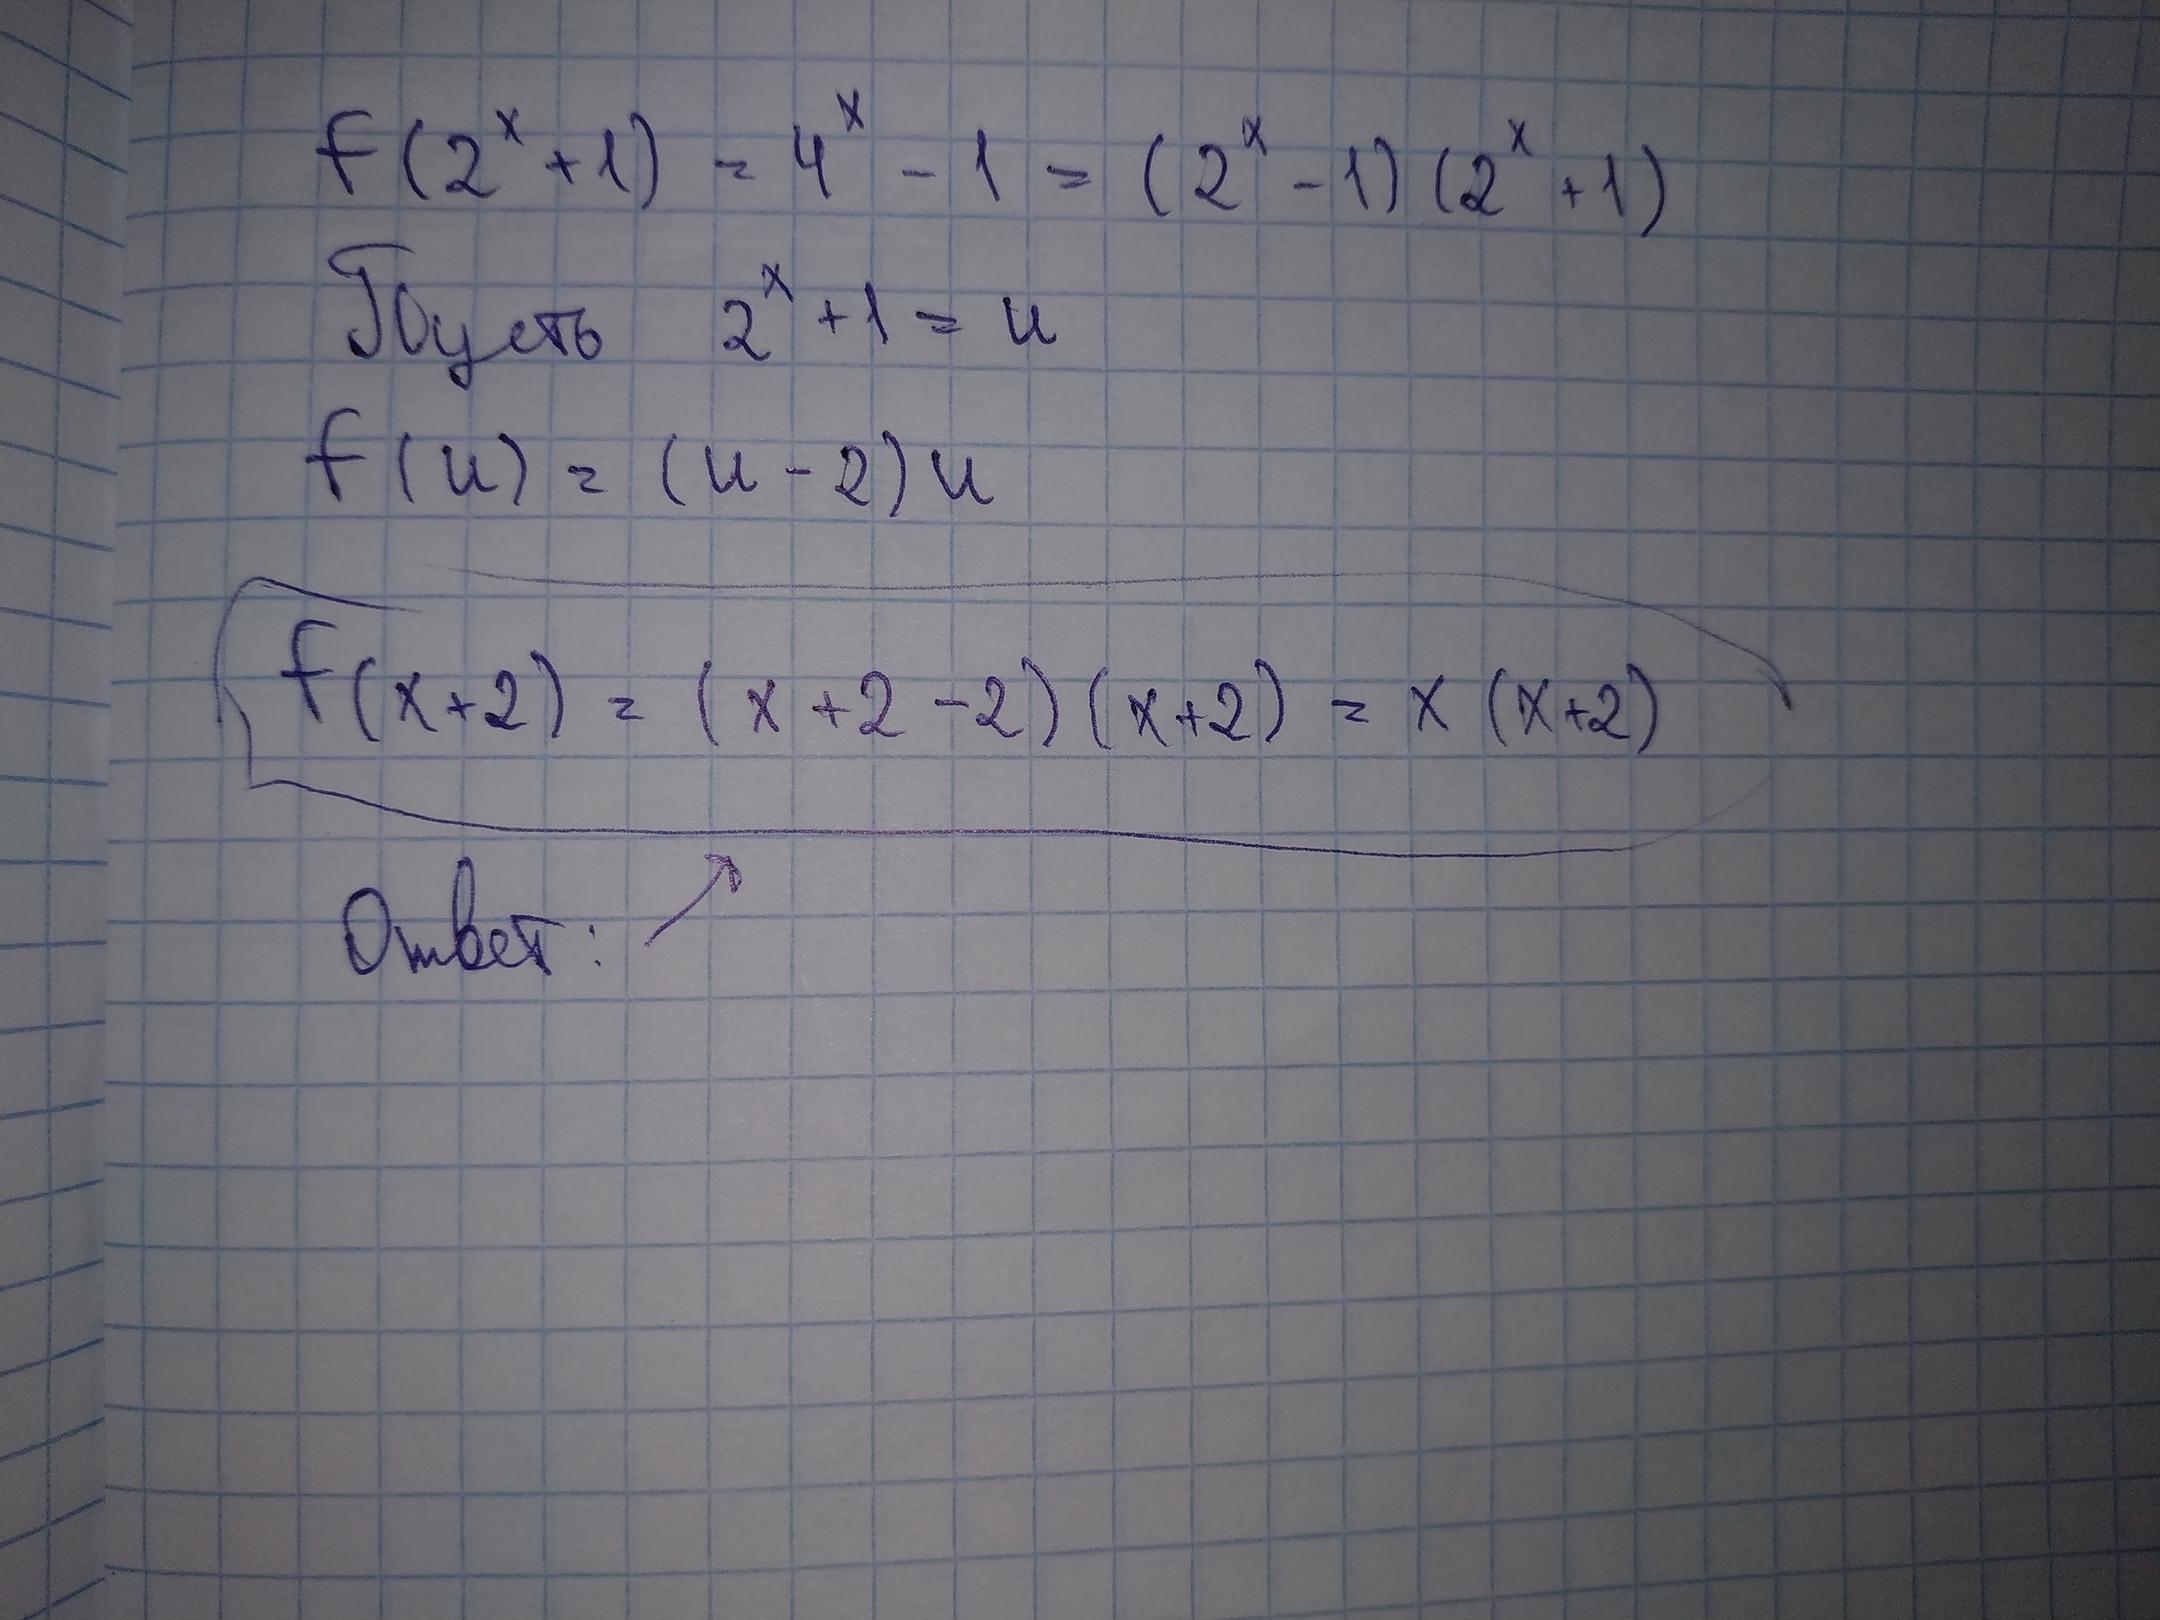 f(2^x+1) = 4^x - 1 = (2^x - 1)(2^x + 1)
Пусть 2^x + 1 = u
f(u) = (u - 2)u
f(x+2) = (x+2-2)(x+2) = x(x+2)
Ответ: ↗